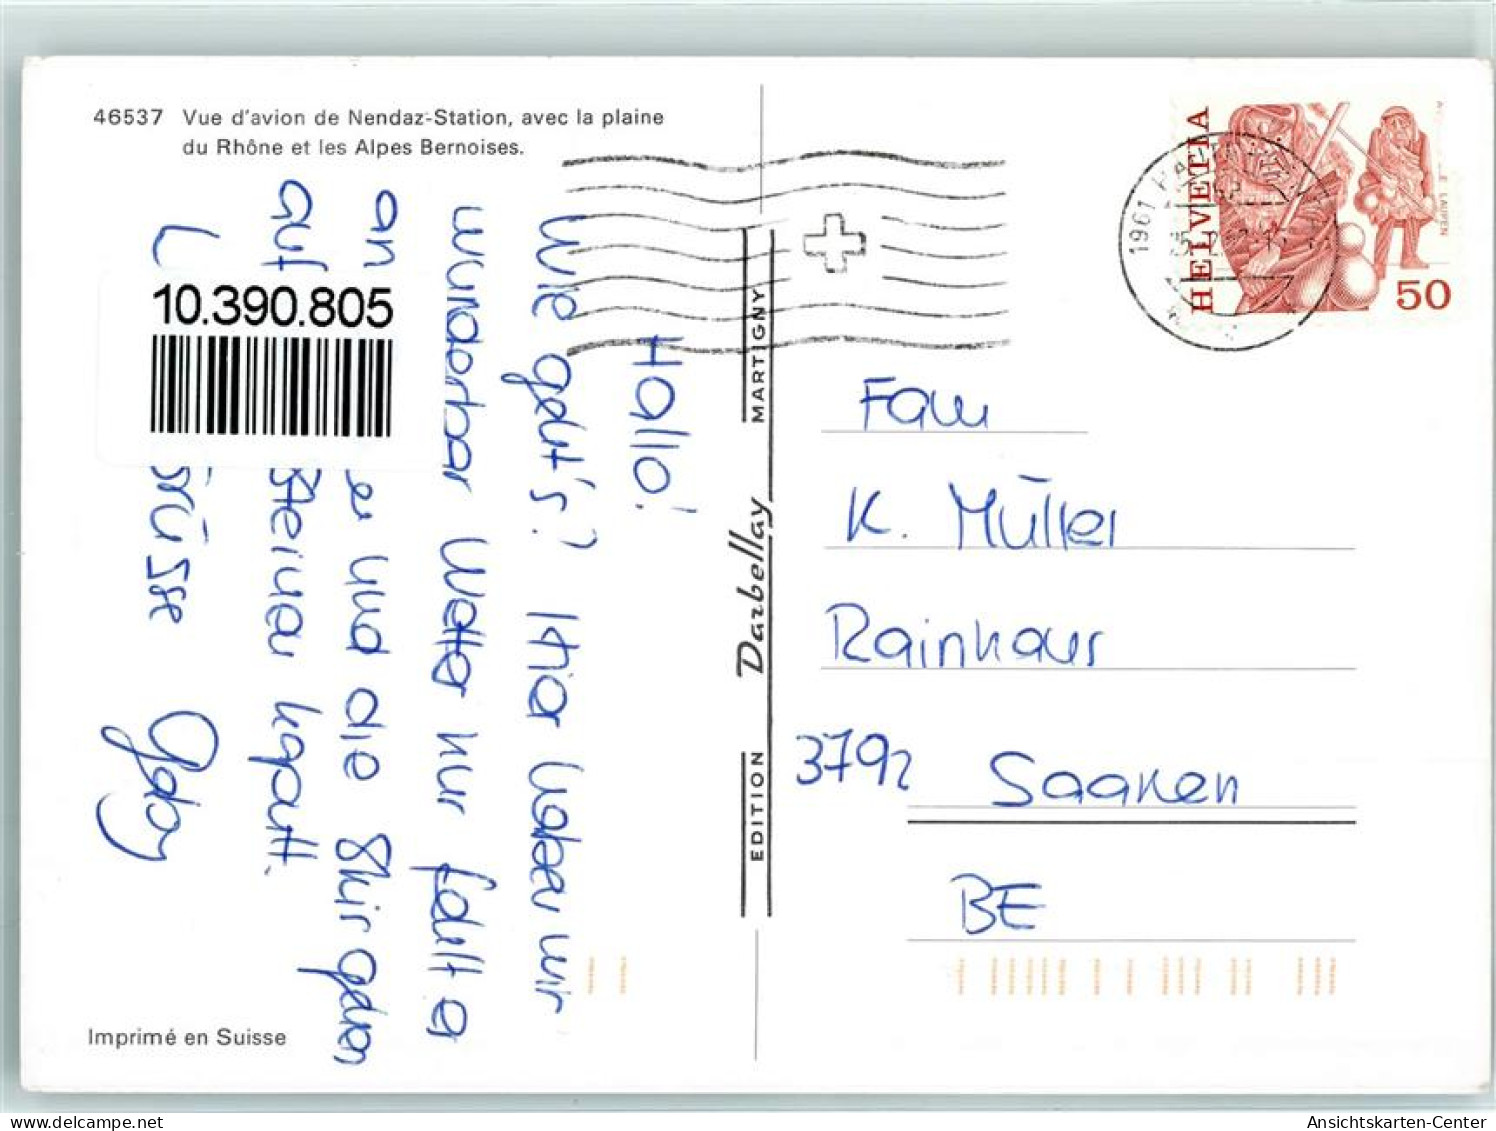 46537 Vue d'avion de Nendaz-Station, avec la plaine
du Rhône et les Alpes Bernoises.
Hallo!
Wie geht's? Hier haben wir
wunderbar Wetter nur fällt er
an und die Skis gehen
auf Steinen kaputt.
L
Grüsse Gaby
10.390.805
EDITION Darbellay MARTIGNY
HELVETIA
50
1961 HAUTE
Fam
K. Müller
Rainhaus
3792 Saanen
BE
Imprimé en Suisse
delcampe.net
Ansichtskarten-Center